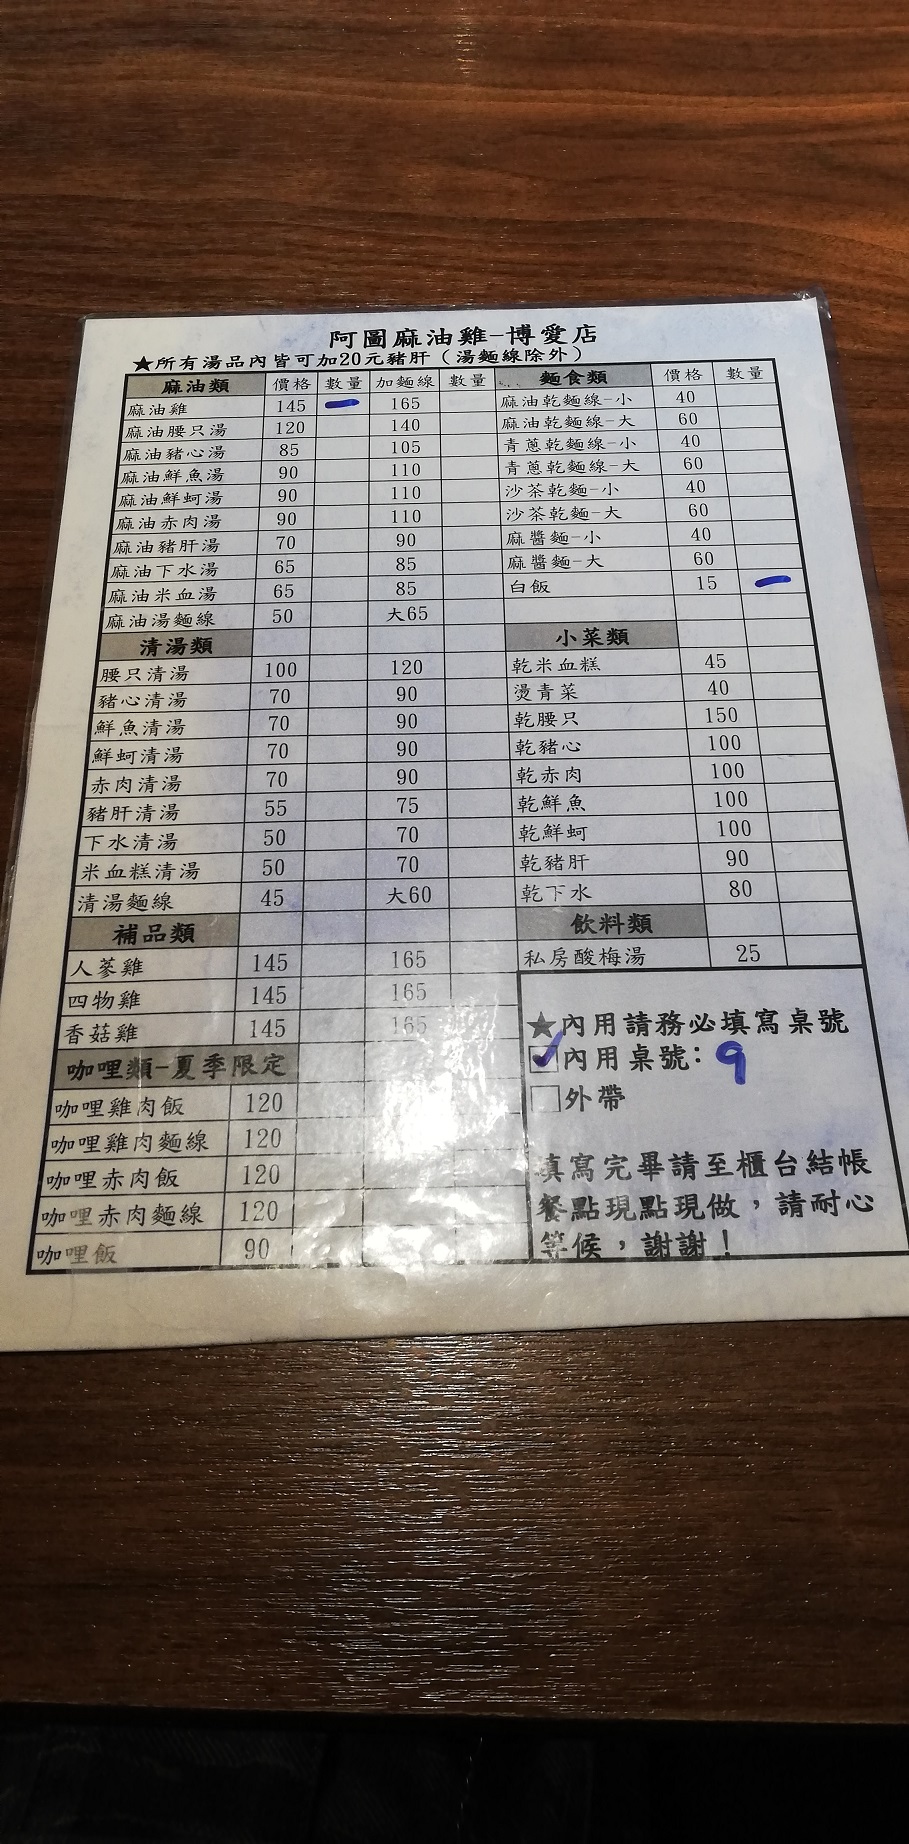 阿圖麻油雞-博愛店
★所有湯品內皆可加20元豬肝（湯麵線除外）
麻油類 價格 數量 加麵線 數量
麻油雞 145 一 165
麻油腰只湯 120 140
麻油豬心湯 85 105
麻油鮮魚湯 90 110
麻油鮮蚵湯 90 110
麻油赤肉湯 90 110
麻油豬肝湯 70 90
麻油下水湯 65 85
麻油米血湯 65 85
麻油湯麵線 50 大65
清湯類
腰只清湯 100 120
豬心清湯 70 90
鮮魚清湯 70 90
鮮蚵清湯 70 90
赤肉清湯 70 90
豬肝清湯 55 75
下水清湯 50 70
米血糕清湯 50 70
清湯麵線 45 大60
補品類
人蔘雞 145 165
四物雞 145 165
香菇雞 145 165
咖哩類-夏季限定
咖哩雞肉飯 120
咖哩雞肉麵線 120
咖哩赤肉飯 120
咖哩赤肉麵線 120
咖哩飯 90
麵食類 價格 數量
麻油乾麵線-小 40
麻油乾麵線-大 60
青蔥乾麵線-小 40
青蔥乾麵線-大 60
沙茶乾麵-小 40
沙茶乾麵-大 60
麻醬麵-小 40
麻醬麵-大 60
白飯 15 一
小菜類
乾米血糕 45
燙青菜 40
乾腰只 150
乾豬心 100
乾赤肉 100
乾鮮魚 100
乾鮮蚵 100
乾豬肝 90
乾下水 80
飲料類
私房酸梅湯 25
★內用請務必填寫桌號
☑內用桌號：9
□外帶
填寫完畢請至櫃台結帳
餐點現點現做，請耐心
等候，謝謝！